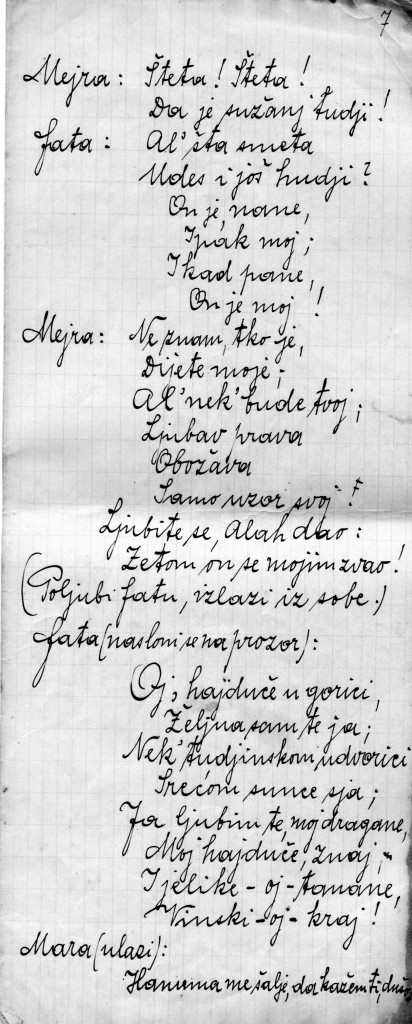 7
Mejra: Šteta! Šteta!
Da je sužanj tudji!
Fata: Al' šta smeta
Udes i još hudji?
On je, nane,
Ipak moj;
I kad pane,
On je moj!
Mejra: Ne znam, tko je,
Dijete moje;
Al' nek' bude tvoj;
Ljubav prava
Obožava
Samo uzor svoj!
Ljubite se, Alah dao:
Zetom on se mojim zvao!
(Poljubi Fatu, izlazi iz sobe.)
Fata (nasloni se na prozor):
Oj, hajduče u gorici,
Željna sam te ja;
Nek' tudjinskom udvorici
Srećom sunce sja;
Ja ljubim te, moj dragane,
Moj hajduče, znaj,-
I jelike - oj - tanane,
Vinski - oj - kraj!
Mara (ulazi):
Hanuma me šalje, da kažem ti,